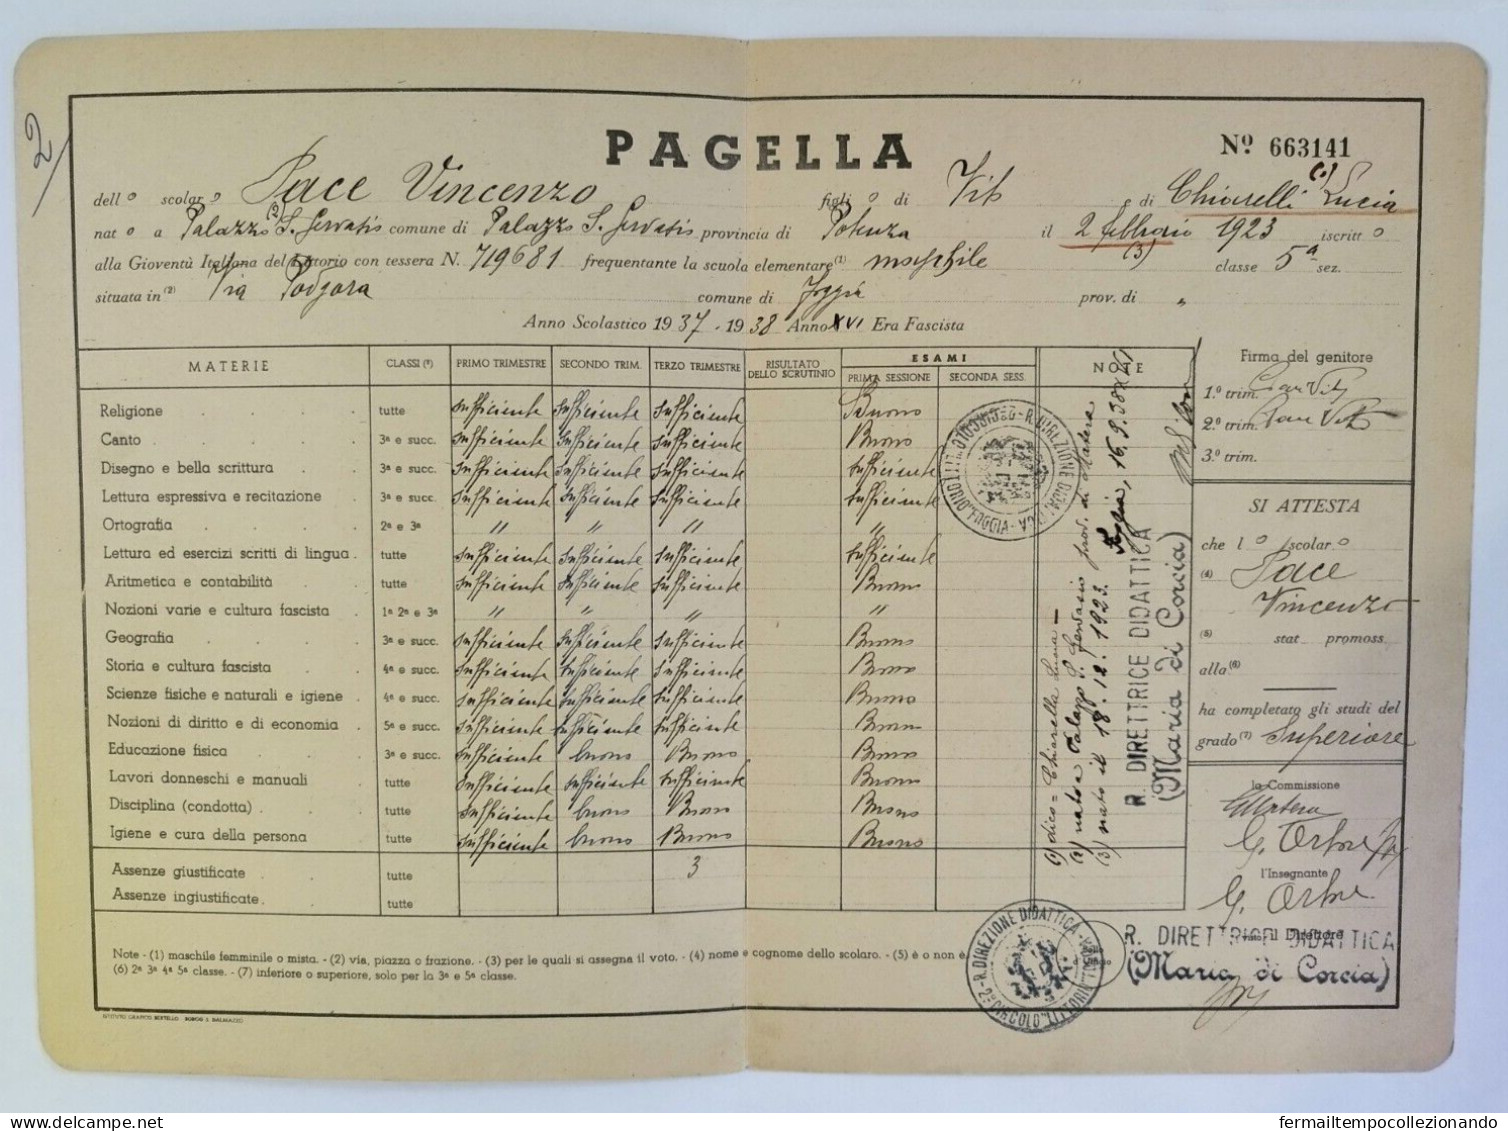 2
PAGELLA
Nº 663141
dell o scolar o Pace Vincenzo figli o di Vito e di Chiarelli (1) Lucia
nat o a Palazzo (2) S. Gervasio comune di Palazzo S. Gervasio provincia di Potenza il 2 febbraio (3) 1923 iscritt o
alla Gioventù Italiana del Littorio con tessera N. 719681 frequentante la scuola elementare (1) maschile classe 5ª sez.
situata in (2) Via Podgora comune di Foggia prov. di "
Anno Scolastico 1937 - 1938 Anno XVI Era Fascista
MATERIE CLASSI (3) PRIMO TRIMESTRE SECONDO TRIM. TERZO TRIMESTRE RISULTATO DELLO SCRUTINIO ESAMI NOTE
PRIMA SESSIONE SECONDA SESS.
Religione tutte sufficiente sufficiente sufficiente Buono
Canto 3ª e succ. sufficiente sufficiente sufficiente Buono
Disegno e bella scrittura 3ª e succ. sufficiente sufficiente sufficiente sufficiente
Lettura espressiva e recitazione 3ª e succ. sufficiente sufficiente sufficiente sufficiente
Ortografia 2ª e 3ª " " " "
Lettura ed esercizi scritti di lingua tutte sufficiente sufficiente sufficiente sufficiente
Aritmetica e contabilità tutte sufficiente sufficiente sufficiente Buono
Nozioni varie e cultura fascista 1ª 2ª e 3ª " " " "
Geografia 3ª e succ. sufficiente sufficiente sufficiente Buono
Storia e cultura fascista 4ª e succ. sufficiente sufficiente sufficiente Buono
Scienze fisiche e naturali e igiene 4ª e succ. sufficiente sufficiente sufficiente Buono
Nozioni di diritto e di economia 5ª e succ. sufficiente sufficiente sufficiente Buono
Educazione fisica 3ª e succ. sufficiente buono Buono Buono
Lavori donneschi e manuali tutte sufficiente sufficiente sufficiente Buono
Disciplina (condotta) tutte sufficiente buono Buono Buono
Igiene e cura della persona tutte sufficiente buono Buono Buono
Assenze giustificate tutte 3
Assenze ingiustificate tutte
(1) dico = Chiarella Lucia =
(2) nato a Palazzo S. Gervasio prov. di Matera
(3) nato il 18. 12. 1923. Foggia, 16.9.38 XVI
R. DIRETTRICE DIDATTICA
(Maria di Corcia)
R. DIREZIONE DIDATTICA
FOGGIA
Firma del genitore
1.º trim. Pace Vito
2.º trim. Pace Vito
3.º trim.
SI ATTESTA
che l o scolar o
(4) Pace
Vincenzo
(5) stat promoss
alla (6)
ha completato gli studi del
grado (7) Superiore
la Commissione
G. Ortore
l'Insegnante
G. Ortore
il Direttore
R. DIRETTRICE DIDATTICA
(Maria di Corcia)
R. DIREZIONE DIDATTICA
2º CIRCOLO
Note - (1) maschile femminile o mista. - (2) via, piazza o frazione. - (3) per le quali si assegna il voto. - (4) nome e cognome dello scolaro. - (5) è o non è.
(6) 2ª 3ª 4ª 5ª classe. - (7) inferiore o superiore, solo per la 3ª e 5ª classe.
ISTITUTO GRAFICO BERTELLO - BORGO S. DALMAZZO
www.delcampe.net
fermailtempocollezionando